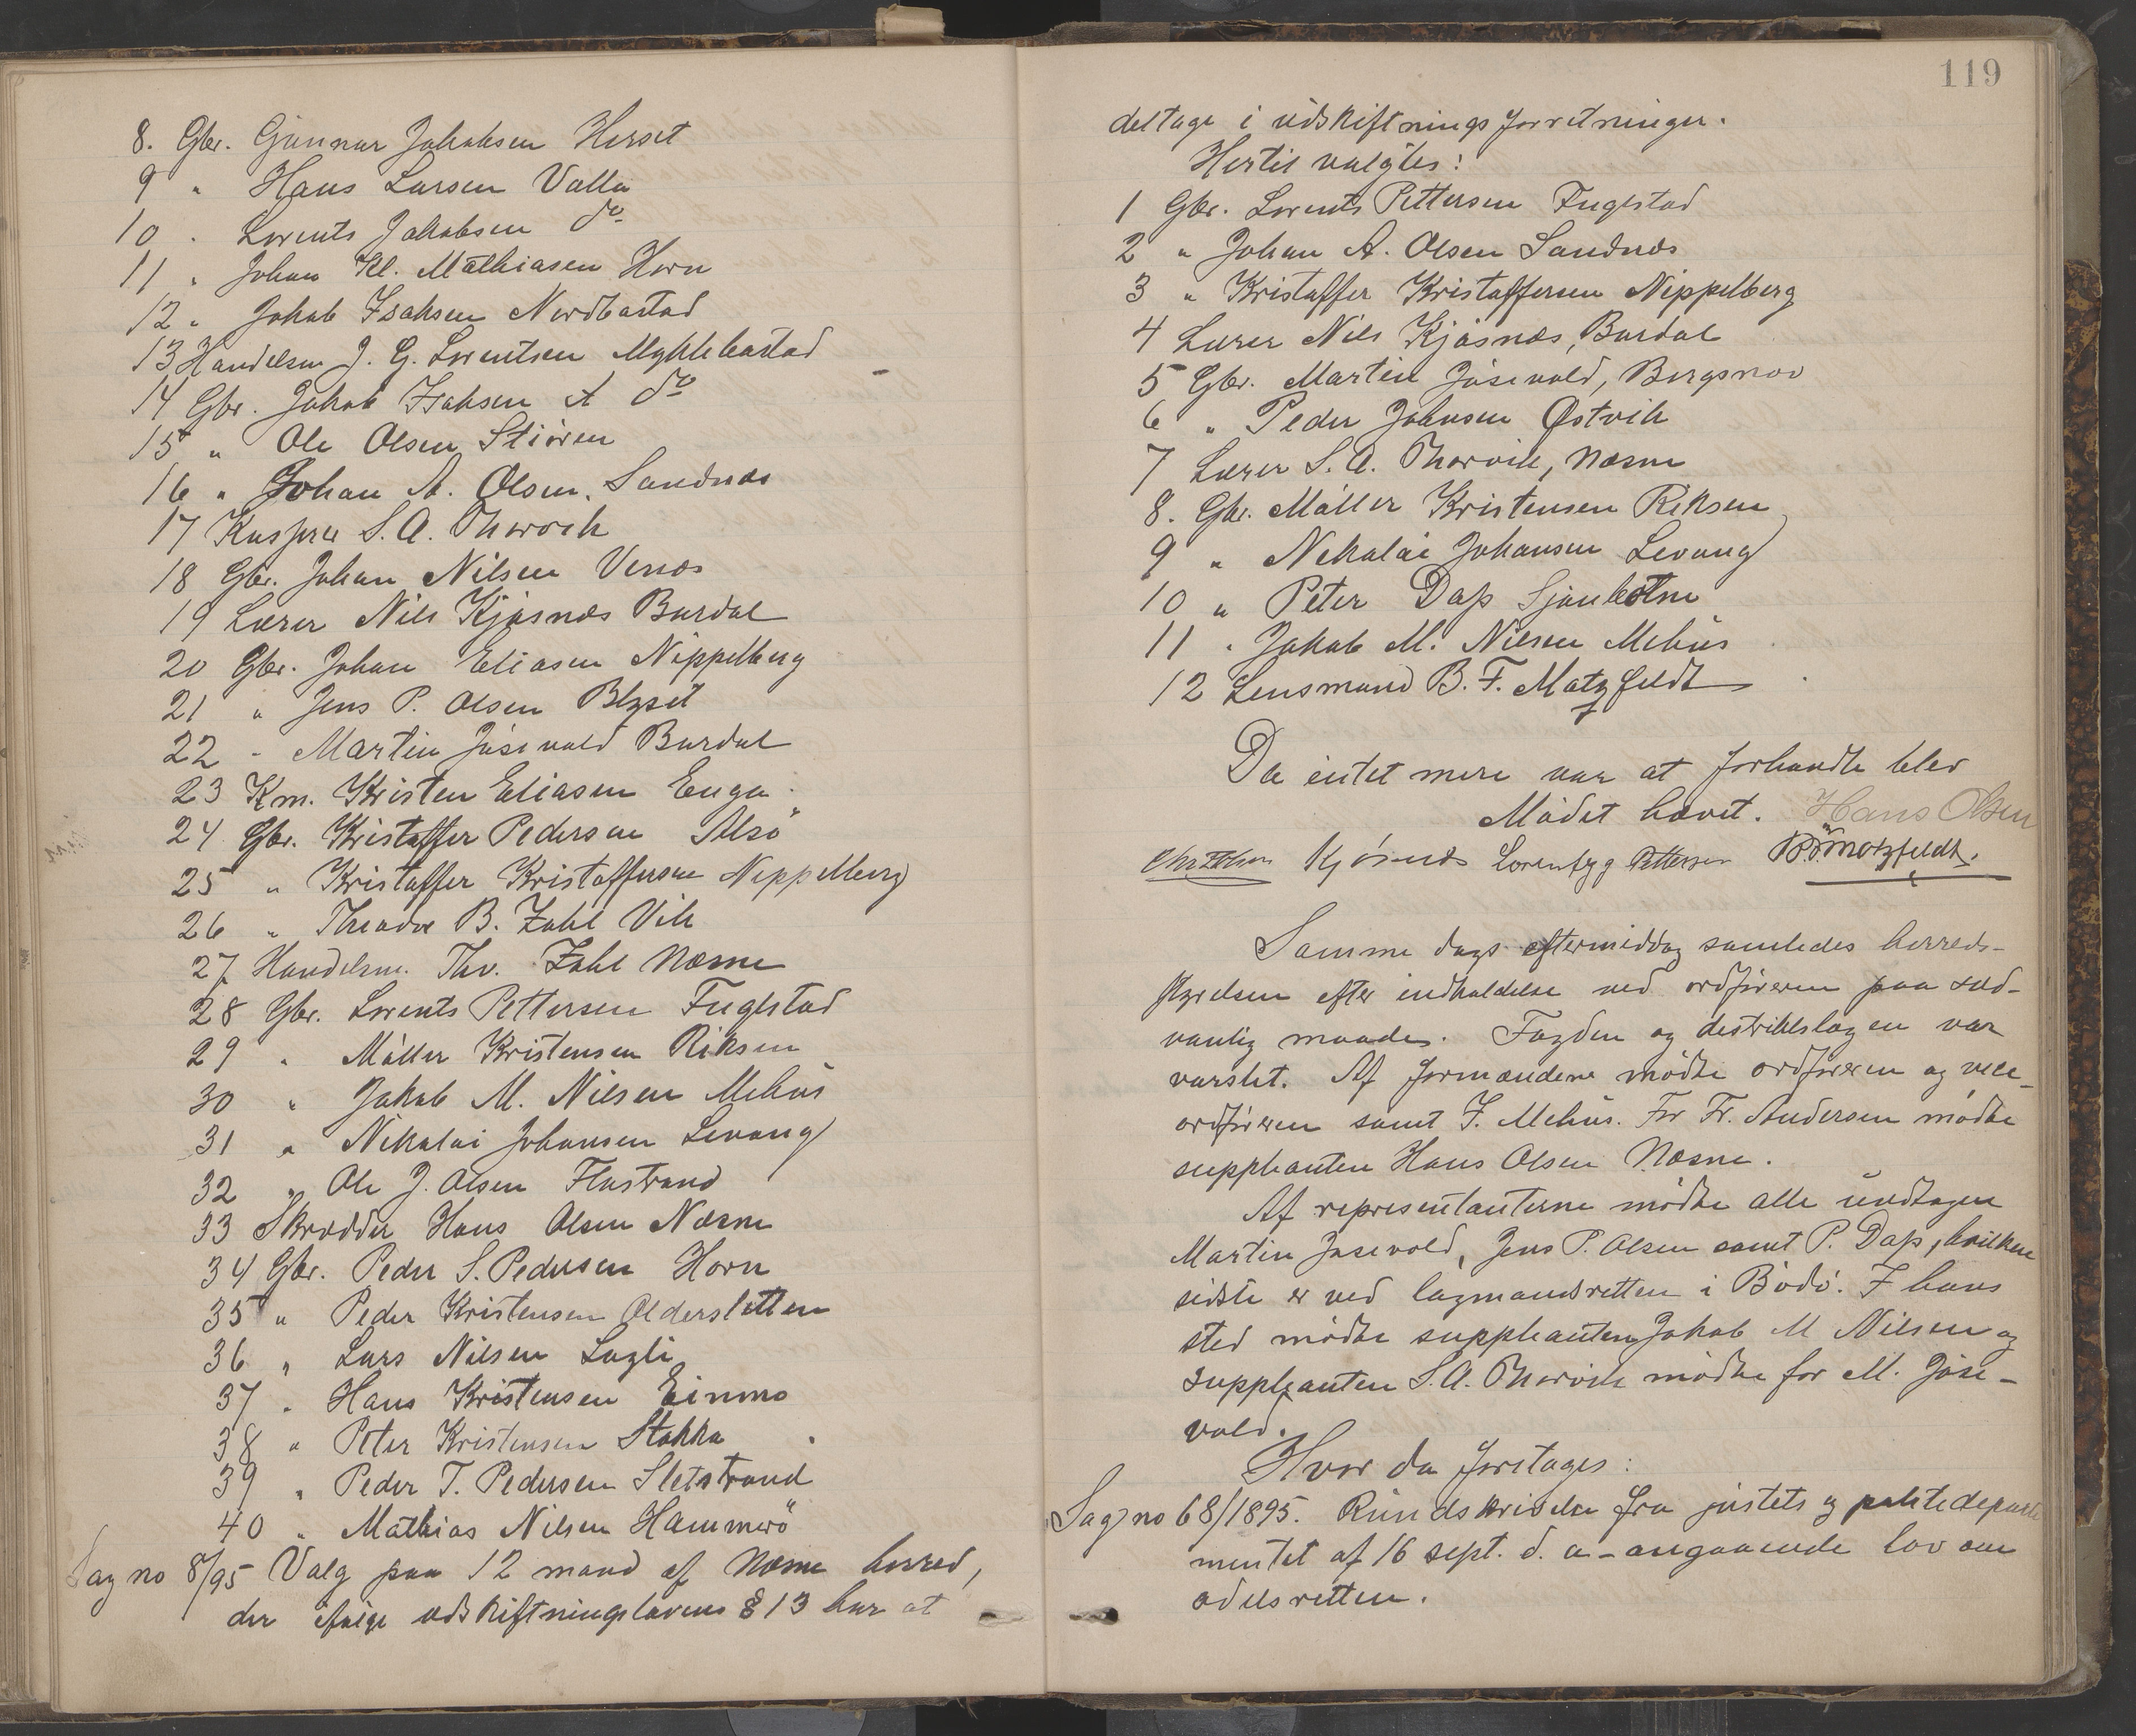 8. Gbr. Gunnar Jakobsen Herset
9 " Hans Larsen Valla
10 " Lorents Jakobsen do
11 " Johan Kl. Mathiasen Horn
12 " Jakob Isaksen Nordbostad
13 Handelsm. J. G. Lorentsen Myklebostad
14 Gbr. Jakob Isaksen A do
15 " Ole Olsen Stioren
16 " Johan A. Olsen, Sandnæs
17 S. A. Thorvik
18 Gbr. Johan Nilsen Venæs
19 Lærer Nils Kjøsnæs Bardal
20 Gbr. Johan Eliasen Nippelberg
21 " Jens P. Olsen Blyset
22 " Martin Jøsevold Bardal
23 Km. Kristen Eliasen Enga
24 Gbr. Kristoffer Pedersen Alsö
25 " Kristoffer Kristoffersen Neppelberg
26 " Theodor B. Zahl Vik
27 Handelsm. Thv. Zahl Næsne
28 Gbr. Lorents Pettersen Fuglstad
29 " Möller Kristensen Riksen
30 " Jakob M. Nilsen Mehus
31 " Nikolai Johansen Levang
32 " Ole J. Olsen Flostrand
33 Skrædder Hans Olsen Næsne
34 Gbr. Peder S. Pedersen Horn
35 " Peder Kristensen Aldersletten
36 " Lars Nilsen Lagli
37 " Hans Kristensen Einmo
38 " Peter Kristensen Stokka
39 " Peder T. Pedersen Sletstrand
40 " Mathias Nilsen Hammerö
Sag no 8/95 Valg paa 12 mand af Næsne herred,
der ifølge udskiftningslovens § 13 har at
119
deltage i udskiftningsforretninger.
Hertil valgtes:
1 Gbr. Lorents Pettersen Fuglstad
2 " Johan A. Olsen Sandnæs
3 " Kristoffer Kristoffersen Nippelberg
4 Lærer Nils Kjøsnæs, Bardal
5 Gbr. Martin Jøsevold, Bergsnov
6 " Peder Johnsen Østvik
7 Lærer S. A. Thorvik, Næsne
8. Gbr. Möller Kristensen Riksen
9 " Nikolai Johansen Levang
10 " Peter Dass Sjonbotne
11 " Jakob M. Nilsen Mehus
12 Lensmand B. F. Motzfeldt
Da intet mere var at forhandle blev
Mödet hævet. Hans Olsen
Kjøsnæs Lorents Pettersen B. F. Motzfeldt.
Samme dags eftermiddag samledes herreds-
styrelsen efter indkaldelse ved ordføreren paa sæd-
vanlig maade. Fogden og distriktslægen var
varslet. Af formændene mödte ordføreren og vice-
ordføreren samt J. Mehus. For Fr. Andersen mödte
suppleanten Hans Olsen Næsne.
Af representanterne mödte alle undtagen
Martin Jøsevold, Jens P. Olsen samt P. Dass, hvilken
sidste er ved lagmandsretten i Bodö. I hans
sted mödte suppleanten Jakob M Nilsen og
suppleanten S. A. Thorvik mödte for M. Jøse-
vold.
Hvor da foretages:
Sag no 68/1895. Rundskrivelse fra justits og politidepart-
mentet af 16 sept. d. a. angaaende lov om
odelsretten.